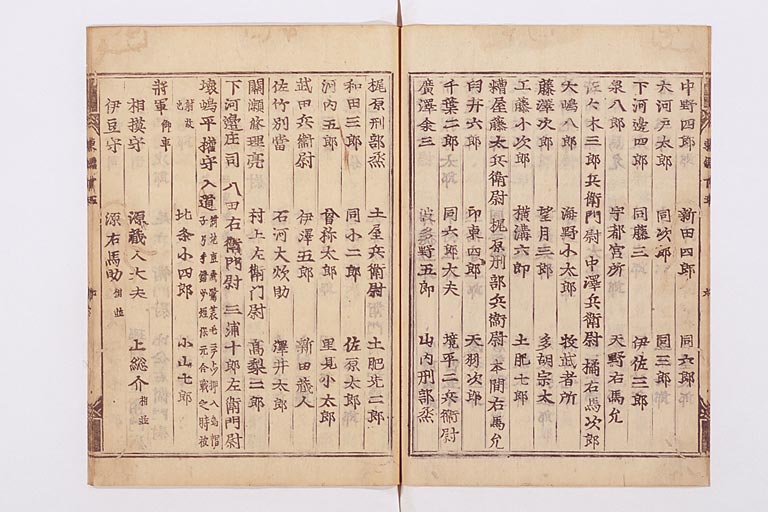 中野四郎 新田四郎 同六郎
大河戸太郎 同次郎 同三郎
下河邊四郎 同藤三 伊佐三郎
泉八郎 宇都宮所 天野右馬允
佐々木三郎兵衛門尉 中澤兵衛尉 橘右馬次郎
大嶋八郎 海野小太郎 牧武者所
藤澤次郎 望月三郎 多胡宗太
工藤小次郎 横溝六郎 土肥七郎
糟屋藤太兵衛尉 梶原刑部兵衛尉 本間右馬允
臼井六郎 印東四郎 天羽次郎
千葉二郎 同六郎大夫 境平二兵衛尉
廣澤余三 波多野五郎 山内刑部烝
梶原刑部烝 土屋兵衛尉 土肥先二郎
和田三郎 同小二郎 佐原太郎
河内五郎 曾祢太郎 里見小太郎
武田兵衛尉 伊澤五郎 新田蔵人
佐竹別當 石河大炊助 澤井太郎
關瀬修理亮 村上左衛門尉 高梨二郎
下河邊庄司 八田右衛門尉 三浦十郎左衛門尉
壊嶋平權守入道
北条小四郎 小山七郎
將軍 御車
相摸守 源蔵人大夫 上総介 相並
伊豆守 源右馬助 相並